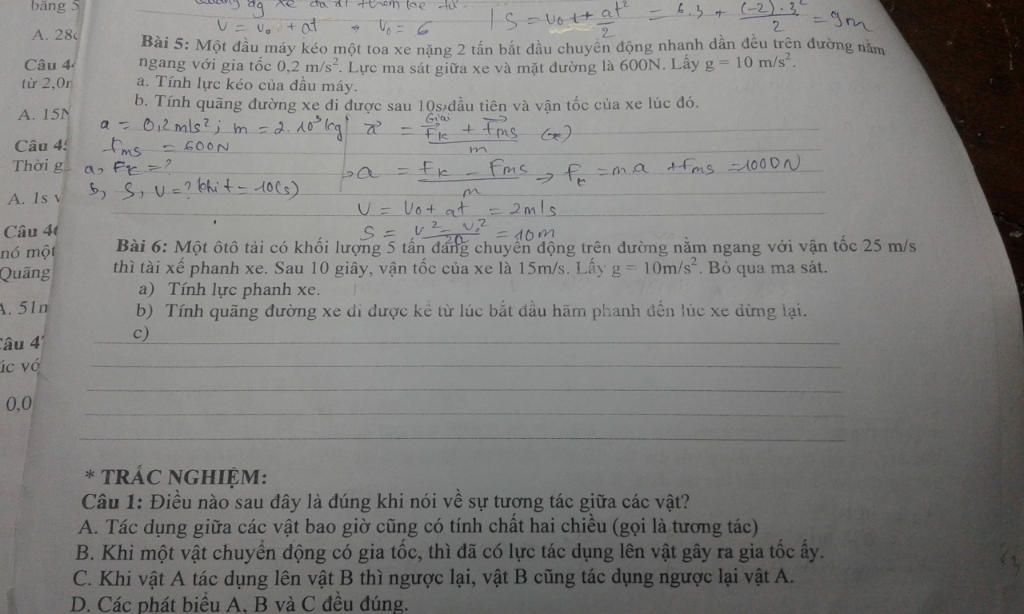 băng 5
V = v₀ + at → v₀ = 6
S = v₀t + at²/2 = 6.3 + (-2).3²/2 = 9m
A. 28
Bài 5: Một đầu máy kéo một toa xe nặng 2 tấn bắt đầu chuyển động nhanh dần đều trên đường nằm
Câu 4
ngang với gia tốc 0,2 m/s². Lực ma sát giữa xe và mặt đường là 600N. Lấy g = 10 m/s².
từ 2,0
a. Tính lực kéo của đầu máy.
b. Tính quãng đường xe đi được sau 10s đầu tiên và vận tốc của xe lúc đó.
A. 15N
Giải
a = 0,2m/s² ; m = 2.10³kg
a⃗ = (F⃗k + F⃗ms)/m (*)
fms = 600N
Câu 4
Thời g
a, Fk = ?
→ a = (Fk - Fms)/m → fk = ma + fms = 1000N
b, S, V = ? khi t = 10(s)
A. 1s v
V = V₀ + at = 2m/s
S = (v² - v₀²)/2a = 10m
Câu 4
nó một
Quãng
Bài 6: Một ôtô tải có khối lượng 5 tấn đang chuyển động trên đường nằm ngang với vận tốc 25 m/s
thì tài xế phanh xe. Sau 10 giây, vận tốc của xe là 15m/s. Lấy g = 10m/s². Bỏ qua ma sát.
a) Tính lực phanh xe.
A. 51n
b) Tính quãng đường xe đi được kể từ lúc bắt đầu hãm phanh đến lúc xe dừng lại.
c)
Câu 4
úc vó
0,0
* TRẮC NGHIỆM:
Câu 1: Điều nào sau đây là đúng khi nói về sự tương tác giữa các vật?
A. Tác dụng giữa các vật bao giờ cũng có tính chất hai chiều (gọi là tương tác)
B. Khi một vật chuyển động có gia tốc, thì đã có lực tác dụng lên vật gây ra gia tốc ấy.
C. Khi vật A tác dụng lên vật B thì ngược lại, vật B cũng tác dụng ngược lại vật A.
D. Các phát biểu A, B và C đều đúng.